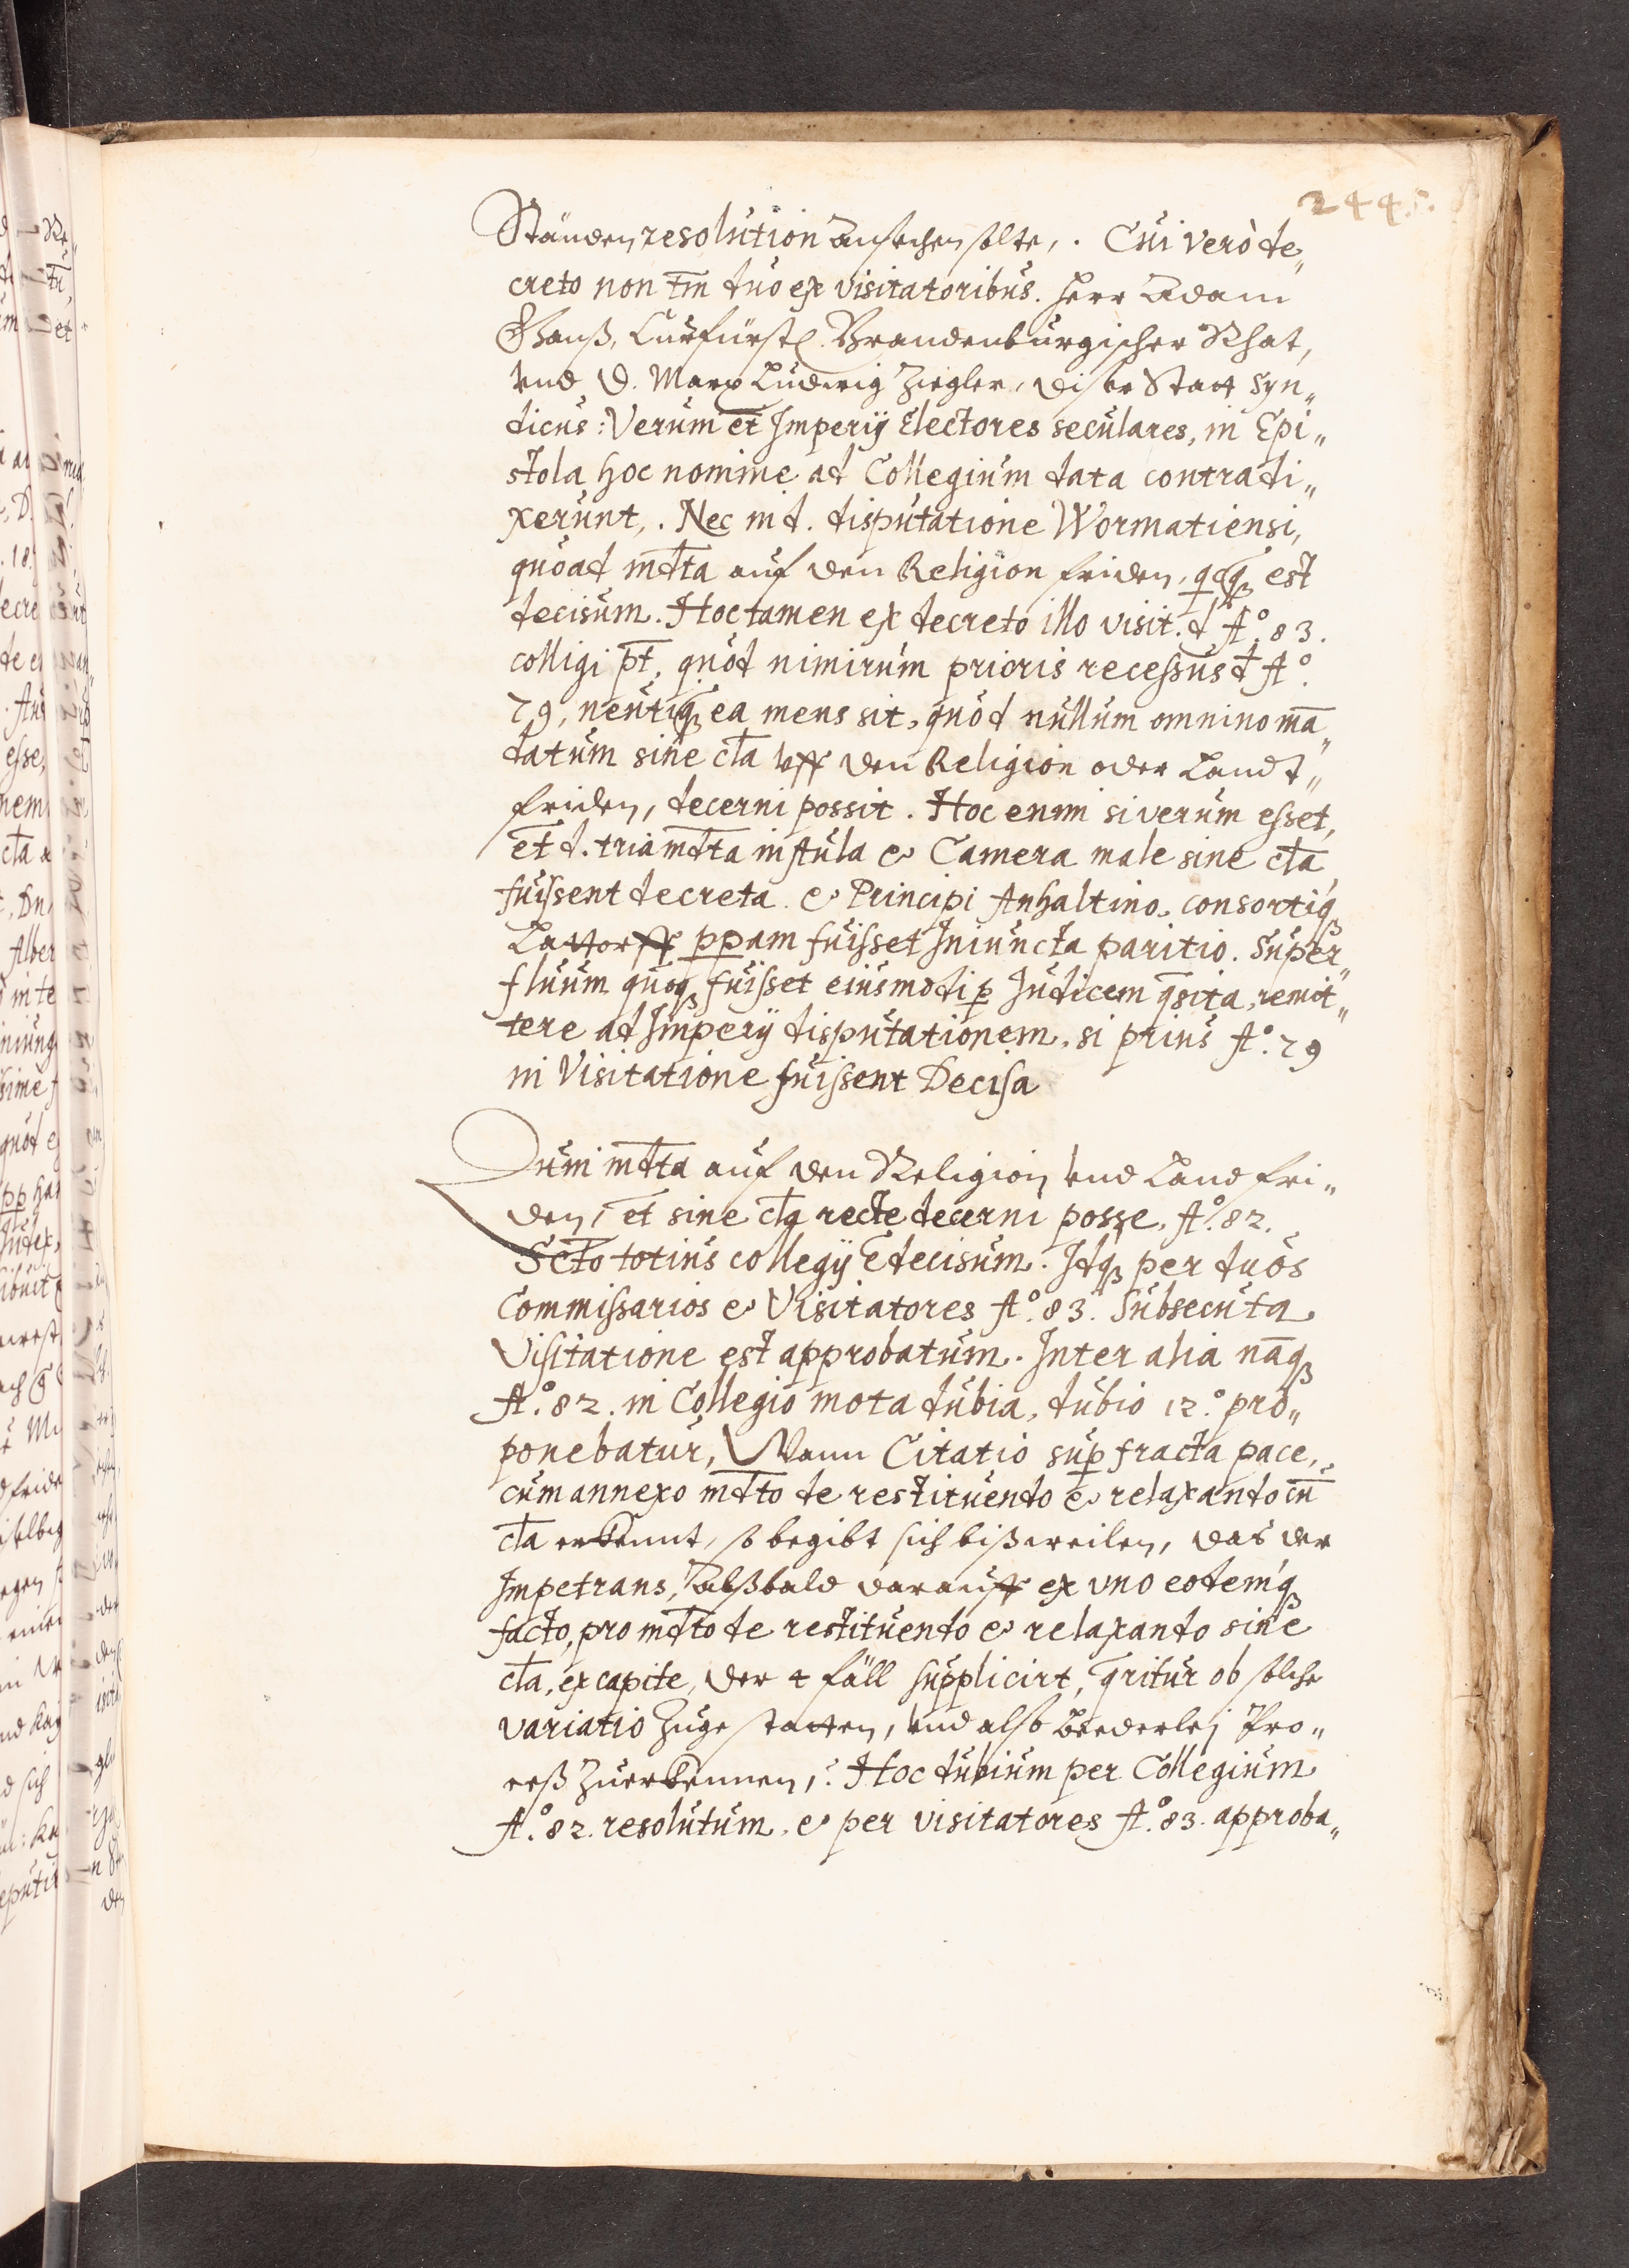 244.
Ständen resolution ansehen solte,. Cui verò de„
creto non tm̄ duo ex visitatoribus. Herr Adam
Ganß, Curfürstl. Brandenburgischer Rhat,
vnd D. Marx Ludwig Ziegler, diser Statt Syn„
dicus: Verum et Imperij Electores seculares, in Epi„
stola hoc nomine ad Collegium data contradi„
xerunt,. Nec in d. disputatione Wormatiensi,
quoad mdta auf den Religion friden, qcq; est
decisum. Hoc tamen ex decreto illo visit. d Aº. 83.
colligi pt̄, quòd nimirum prioris recessus d Aº.
79, neutiq; ea mens sit, quòd nullum omnino mā„
datum sine cla vff den Religion oder Landt„
friden, decerni possit. Hoc enim si verum esset,
et d. tria mdta in Aula & Camera male sine cla
fuissent decreta. & Principi Anhaltino, consortiq;
Lattorff ppam fuisset Iniuncta paritio. Super„
fluum quoq; fuisset eiusmodi p Iudicem qsita, remit„
tere ad Imperij disputationem, si prius Aº. 79
in Visitatione fuissent Decisa
Dum mdta auf den Religion vnd Land fri„
den, et sine cla recte decerni posse, Aº. 82.
Scto totius collegij E decisum. Idq; per duos
Commissarios & Visitatores Aº. 83. Subsecuta
Visitatione est approbatum. Inter alia nāq;
Aº. 82. in Collegio mota dubia, dubio 12.º pro„
ponebatur, Wann Citatio sup fracta pace,
cum annexo mdto de restituendo & relaxando cū
cla erkennt, so begibt sich bißweilen, das der
Impetrans, alßbald darauff ex vno eodemq;
facto, pro mdto de restituendo & relaxando sine
cla, ex capite, der 4 fäll supplicirt, qritur ob solche
variatio Zuge statten, vnd also beederlej Pro„
ceß Zuerkennen,? Hoc dubium per Collegium
Aº. 82. resolutum, & per visitatores Aº. 83. approba„